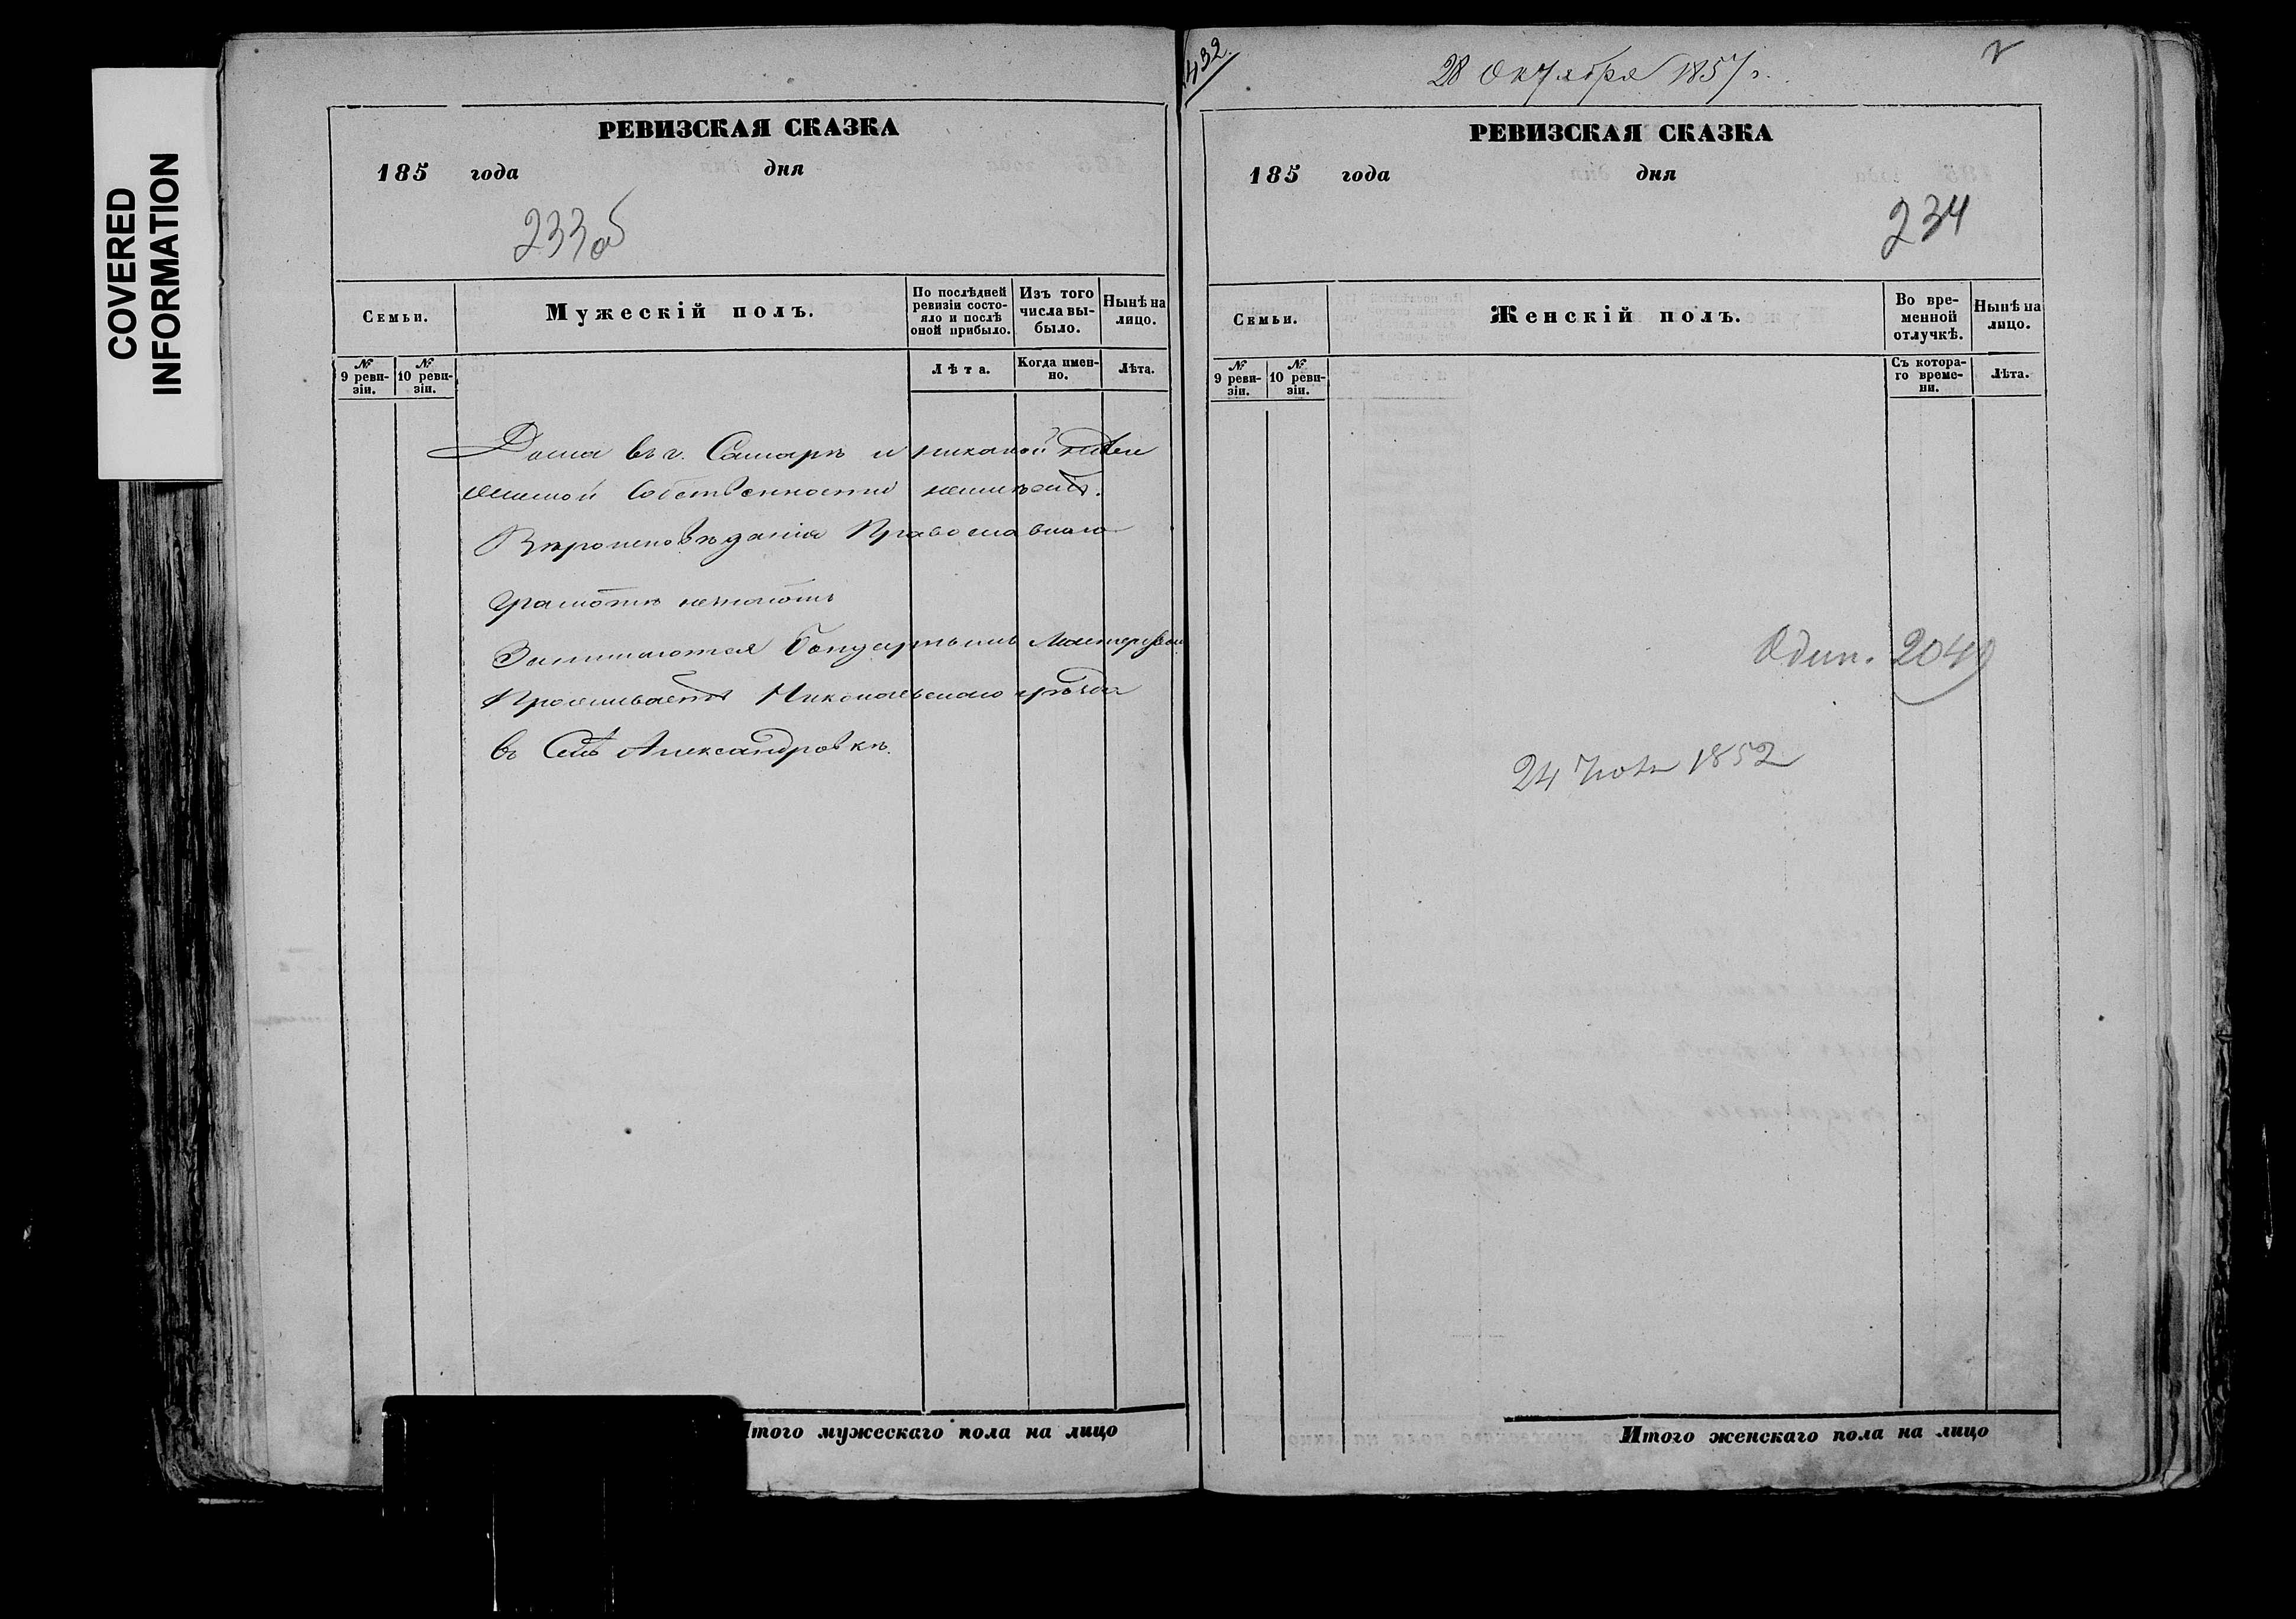 COVERED
INFORMATION
РЕВИЗСКАЯ СКАЗКА
185 года дня
233 об
Семьи.
Мужескій полъ.
По послѣдней ревизіи состояло и послѣ оной прибыло.
Изъ того числа выбыло.
Нынѣ на лицо.
№ 9 ревизіи.
№ 10 ревизіи.
Лѣта.
Когда именно.
Лѣта.
Дома въ г. Самарѣ и никакой недви
жимой собственности неимѣетъ.
Вѣроисповѣданія Православнаго
Грамотѣ незнаютъ
Занимаются бондарнымъ мастерством
Проживаетъ Николаевскаго уѣзда
въ Селѣ Александровкѣ.
Итого мужескаго пола на лицо
432.
28 Октября 1857 г.
РЕВИЗСКАЯ СКАЗКА
185 года дня
234
Семьи.
Женскій полъ.
Во временной отлучкѣ.
Нынѣ на лицо.
№ 9 ревизіи.
№ 10 ревизіи.
Съ котораго времени.
Лѣта.
Один. 2040
24 1852
Итого женскаго пола на лицо